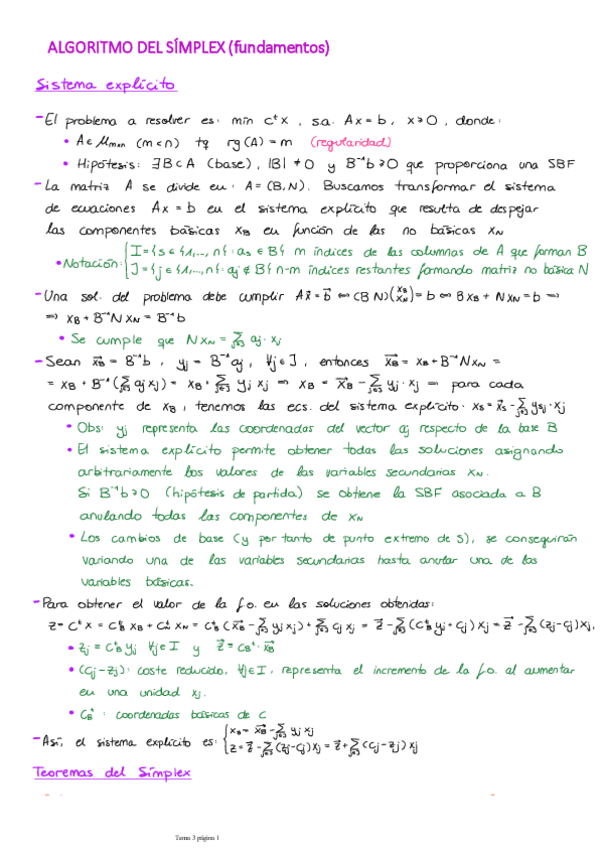 ALGORITMO DEL SÍMPLEX (fundamentos)
Sistema explícito
- El problema a resolver es: mín cᵗx, s.a. Ax = b, x ≥ 0, donde:
• A ∈ M_{m×n} (m<n) tq rg(A) = m (regularidad)
• Hipótesis: ∃B⊂A (base), |B| ≠ 0 y B⁻¹b ≥ 0 que proporciona una SBF
- La matriz A se divide en: A = (B, N). Buscamos transformar el sistema
de ecuaciones Ax = b en el sistema explícito que resulta de despejar
las componentes básicas x_B en función de las no básicas x_N
• Notación: { I = {s ∈ {1,..., n} : a_s ∈ B} m índices de las columnas de A que forman B
J = {j ∈ {1,..., n} : a_j ∉ B} n-m índices restantes formando matriz no básica N
- Una sol. del problema debe cumplir Ax̄ = b̄ ⟺ (B N)(x_B x_N) = b ⟺ B x_B + N x_N = b ⟹
⟹ x_B + B⁻¹N x_N = B⁻¹b
• Se cumple que N x_N = Σ_{j∈J} a_j · x_j
- Sean x̄_B = B⁻¹b, y_j = B⁻¹a_j, ∀j ∈ J, entonces x̄_B = x_B + B⁻¹N x_N =
= x_B + B⁻¹(Σ_{j∈J} a_j x_j) = x_B + Σ_{j∈J} y_j x_j ⟹ x_B = x̄_B - Σ_{j∈J} y_j · x_j ⟹ para cada
componente de x_B, tenemos las ecs. del sistema explícito: x_s = x̄_s - Σ_{j∈J} y_sj · x_j
• Obs: y_j representa las coordenadas del vector a_j respecto de la base B
• El sistema explícito permite obtener todas las soluciones asignando
arbitrariamente los valores de las variables secundarias x_N.
Si B⁻¹b ≥ 0 (hipótesis de partida) se obtiene la SBF asociada a B
anulando todas las componentes de x_N
• Los cambios de base (y por tanto de punto extremo de S), se conseguirán
variando una de las variables secundarias hasta anular una de las
variables básicas.
- Para obtener el valor de la f.o. en las soluciones obtenidas:
z = cᵗx = c_Bᵗ x_B + c_Nᵗ x_N = c_Bᵗ (x̄_B - Σ_{j∈J} y_j x_j) + Σ_{j∈J} c_j x_j = z̄ - Σ_{j∈J} (c_Bᵗ y_j + c_j) x_j = z̄ - Σ_{j∈J} (z_j - c_j) x_j.
• z_j = c_Bᵗ y_j ∀j ∈ I y z̄ = c_Bᵗ · x̄_B
• (c_j - z_j): coste reducido, ∀j ∈ I, representa el incremento de la f.o. al aumentar
en una unidad x_j.
• c_Bᵗ : coordenadas básicas de c
- Así, el sistema explícito es: { x_B = x̄_B - Σ_{j∈J} y_j x_j
z = z̄ - Σ_{j∈J} (z_j - c_j) x_j = z̄ + Σ_{j∈J} (c_j - z_j) x_j
Teoremas del Símplex
Tema 3 página 1